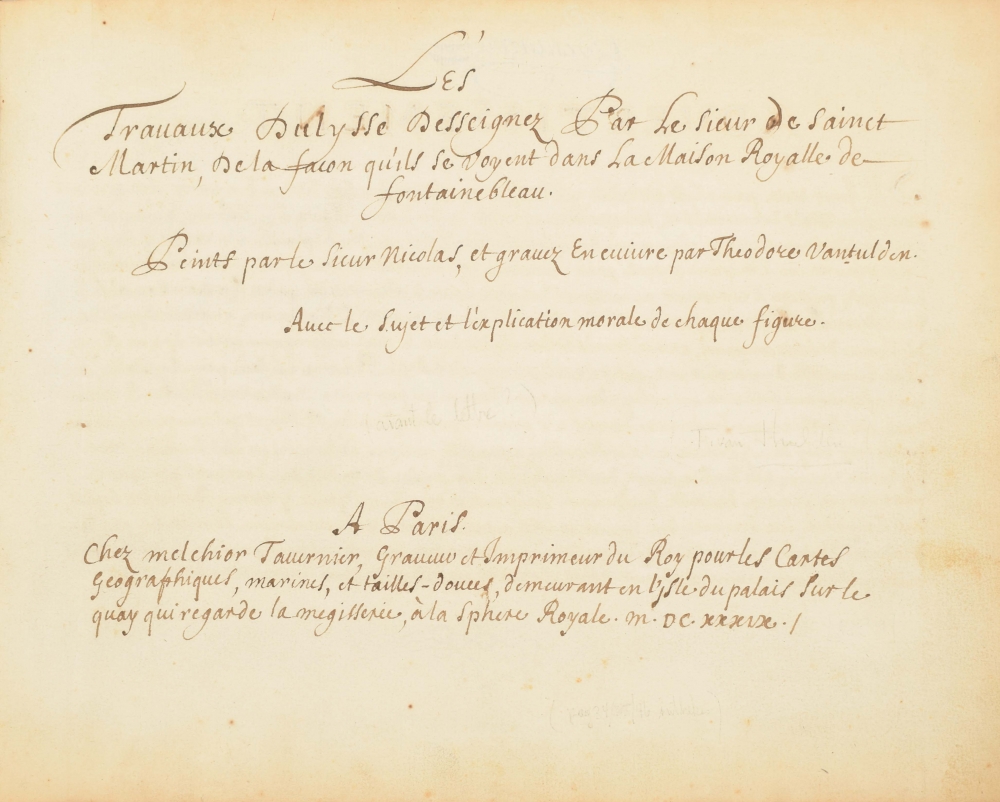 Les
Travaux Dulysse Desseignez Par Le Sieur De Sainct
Martin, De la facon qu'ils se voyent dans La Maison Royalle de
fontainebleau.
Peints par le Sieur Nicolas, et gravez En cuivre par Theodore Vantulden.
Avec le Sujet et l'explication morale de chaque figure.
A Paris.
Chez melchior Tavernier, Graveur et Imprimeur du Roy pour les Cartes
Geographiques, marines, et tailles-douces, demeurant en l'Isle du palais Sur le
quay qui regarde la megisserie, a la Sphere Royale. m. DC. xxxix. /